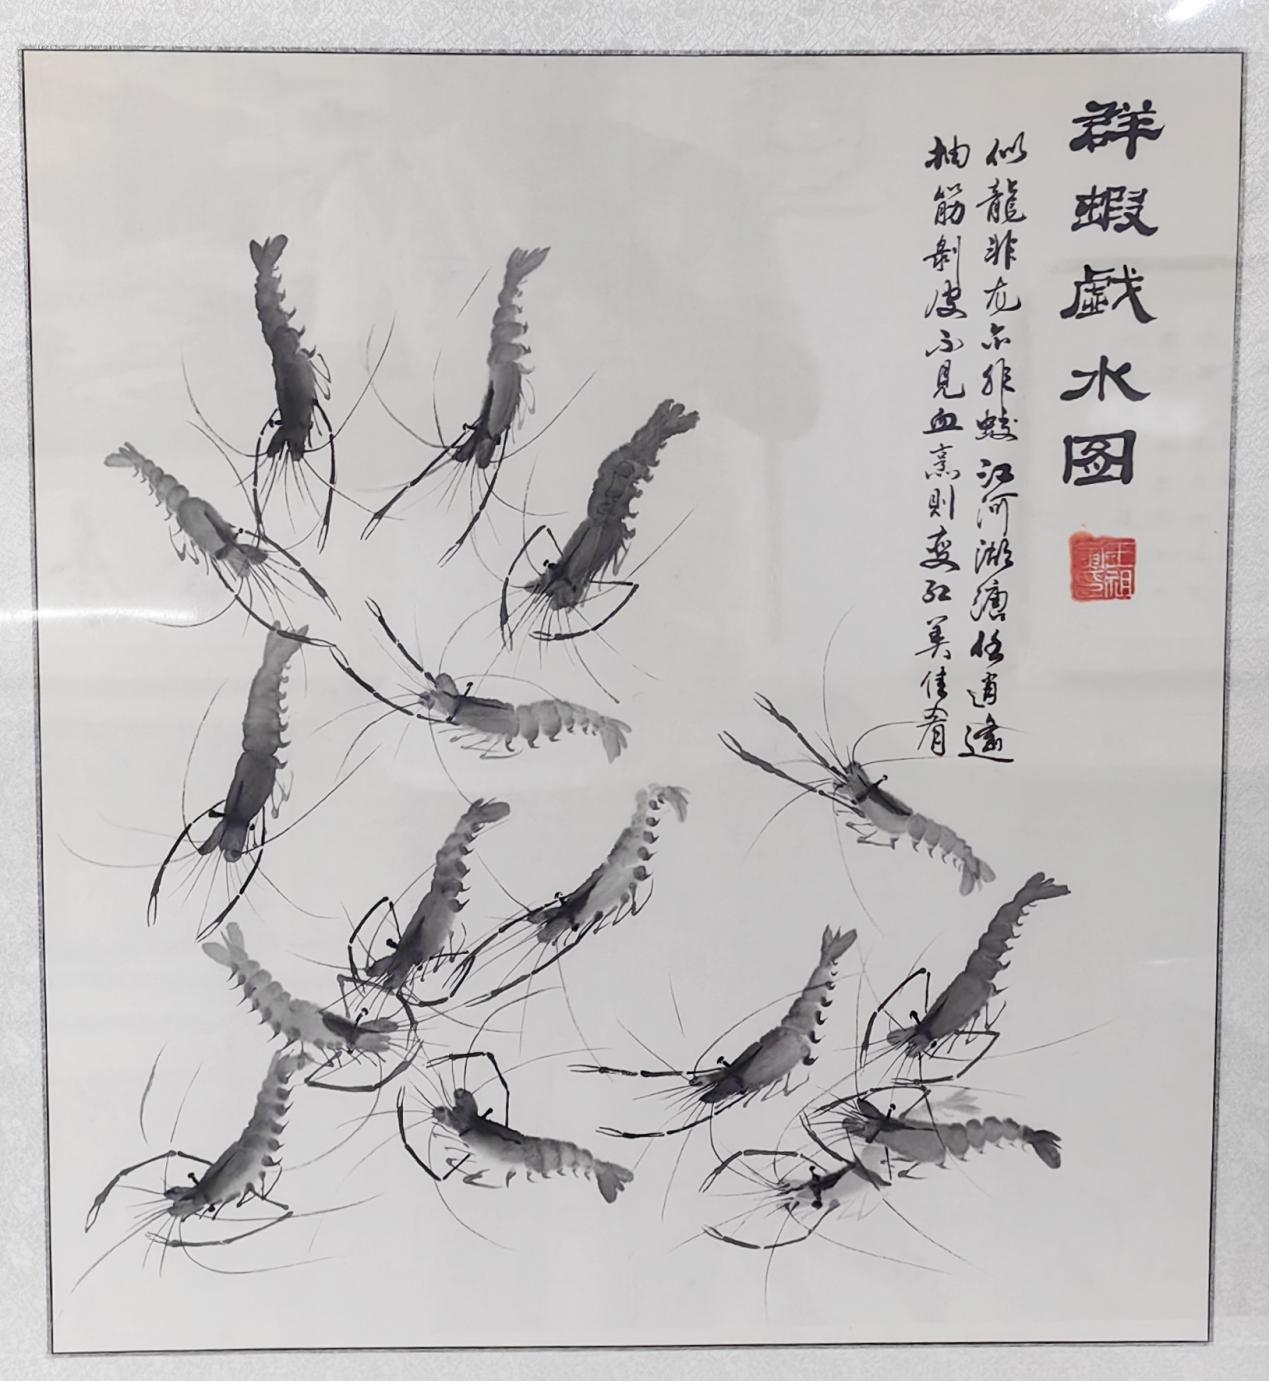 群蝦戯水图
似龍非龙亦非蛟江河湖塘任逍遙
抽筋剝皮不见血烹则变红美佳肴